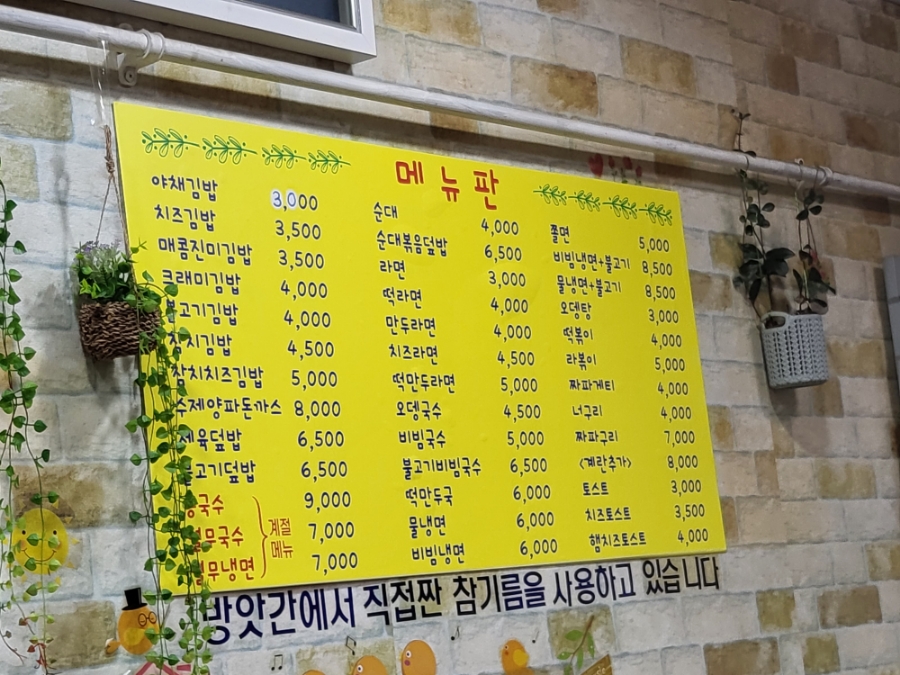 메뉴판
야채김밥 3,000
치즈김밥 3,500
매콤진미김밥 3,500
크래미김밥 4,000
불고기김밥 4,000
참치김밥 4,500
참치치즈김밥 5,000
수제양파돈까스 8,000
제육덮밥 6,500
불고기덮밥 6,500
콩국수 9,000
열무국수 7,000
열무냉면 7,000
계절
메뉴
순대 4,000
순대볶음덮밥 6,500
라면 3,000
떡라면 4,000
만두라면 4,000
치즈라면 4,500
떡만두라면 5,000
오뎅국수 4,500
비빔국수 5,000
불고기비빔국수 6,500
떡만두국 6,000
물냉면 6,000
비빔냉면 6,000
쫄면 5,000
비빔냉면+불고기 8,500
물냉면+불고기 8,500
오뎅탕 3,000
떡볶이 4,000
라볶이 5,000
짜파게티 4,000
너구리 4,000
짜파구리 7,000
<계란추가> 8,000
토스트 3,000
치즈토스트 3,500
햄치즈토스트 4,000
방앗간에서 직접짠 참기름을 사용하고 있습니다